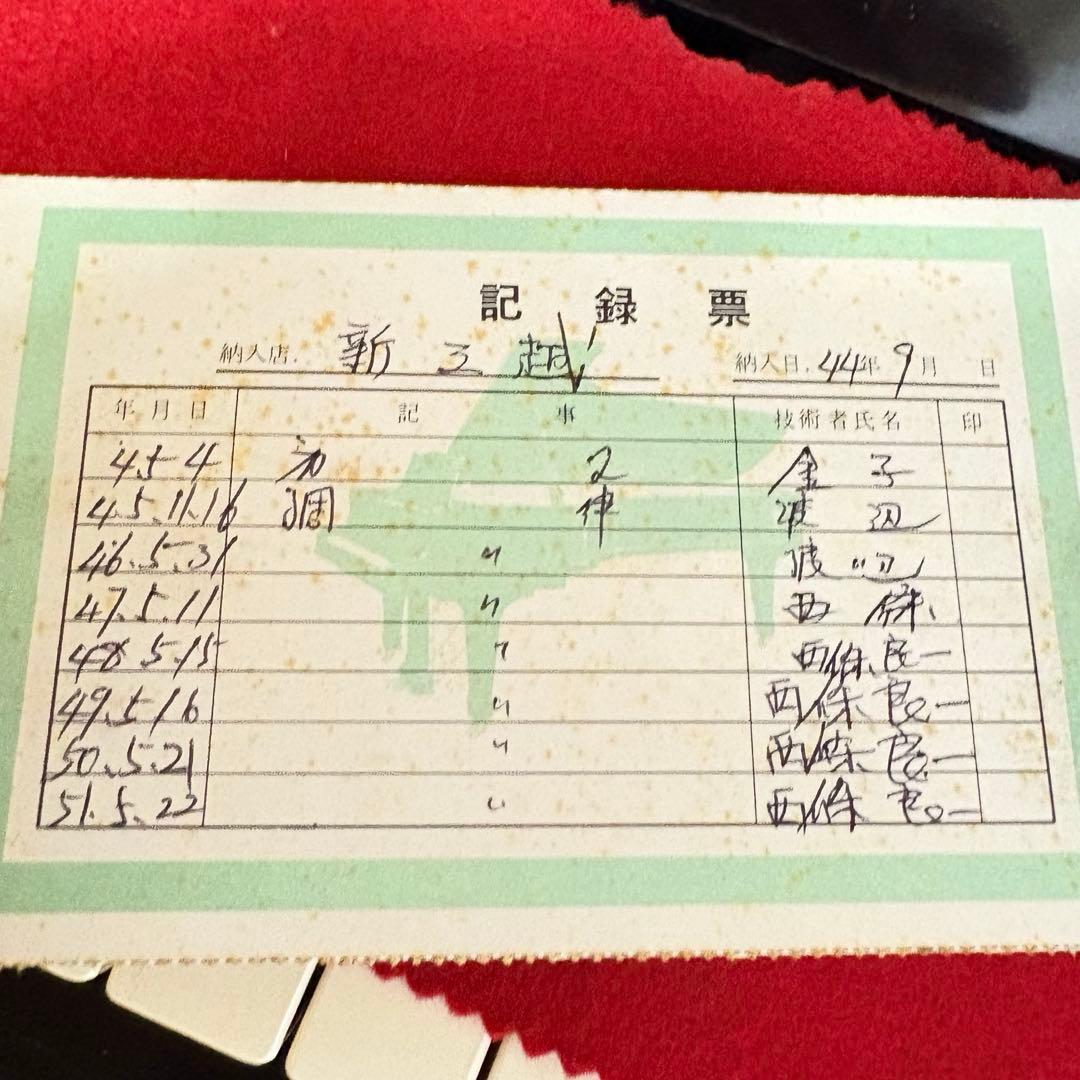 記録票
納入店. 新三越 納入日. 44年9月 日
年月日 記事 技術者氏名 印
45.4 金子
45.11.16 調律 渡辺
46.5.31 〃 渡辺
47.5.11 〃 西條
48 5.15 〃 西條良一
49.5.16 〃 西條良一
50.5.21 〃 西條良一
51.5.22 〃 西條良一